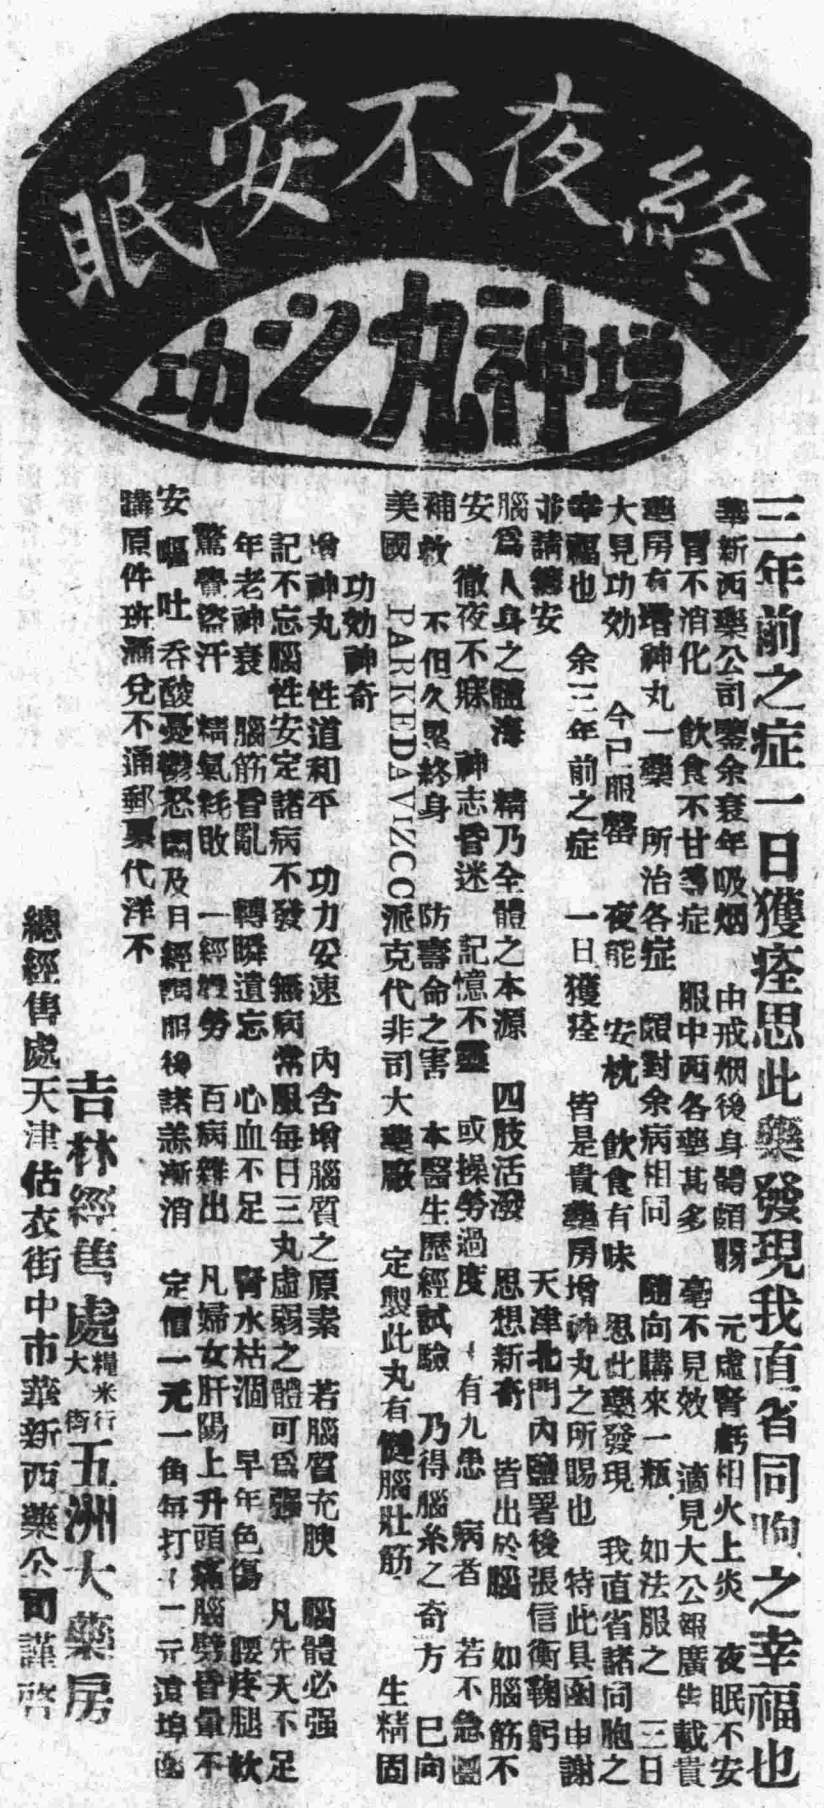 終夜不安眠
增神丸之功
三年前之症一日獲痊思此藥發現我直省同胞之幸福也
華新西藥公司鑒余衰年吸烟 由戒烟後身體頗弱 元虛腎虧相火上炎 夜眠不安
胃不消化 飲食不甘等症 服中西各藥甚多 毫不見效 適見大公報廣告載貴
藥房有增神丸一藥 所治各症 頗對余病相同 隨向購來一瓶 如法服之 三日
大見功効 今已服罄 夜能 安枕 飲食有味 思此藥發現 我直省諸同胞之
幸福也 余三年前之症 一日獲痊 皆是貴藥房增神丸之所賜也 特此具函申謝
並請鑄安 天津北門內鹽署後張信衡鞠躬
腦為人身之體海 精乃全體之本源 四肢活潑 思想新奇 皆出於腦 如腦筋不
安 徹夜不寐 神志昏迷 記憶不靈 或操勞過度 有九患 病者 若不急圖
補救 不但久累終身 防壽命之害 本醫生歷經試驗 乃得腦系之奇方 已向
美國 PARKEDAVIZCO派克代非司大藥廠 定製此丸有健腦壯筋 生精固
功効神奇
增神丸 性道和平 功力安速 內含增腦質之原素 若腦質充腴 腦體必强
記不忘腦性安定諸病不發 無病常服每日三丸虛弱之體可為强 凡先天不足
年老神衰 腦筋昏亂 轉瞬遺忘 心血不足 腎水枯涸 早年色傷 腰疼腿軟
驚覺盜汗 精氣耗敗 一經輕勞 百病雜出 凡婦女肝陽上升頭痛腦劈昏暈不
安 嘔吐 吞酸憂鬱怒悶及月經調服後諸恙漸消 定價一元一角每打十二元遠埠函
購原件班滙兌不通郵票代洋不
吉林經售處糧米行大街五洲大藥房
總經售處天津估衣街中市華新西藥公司謹啓